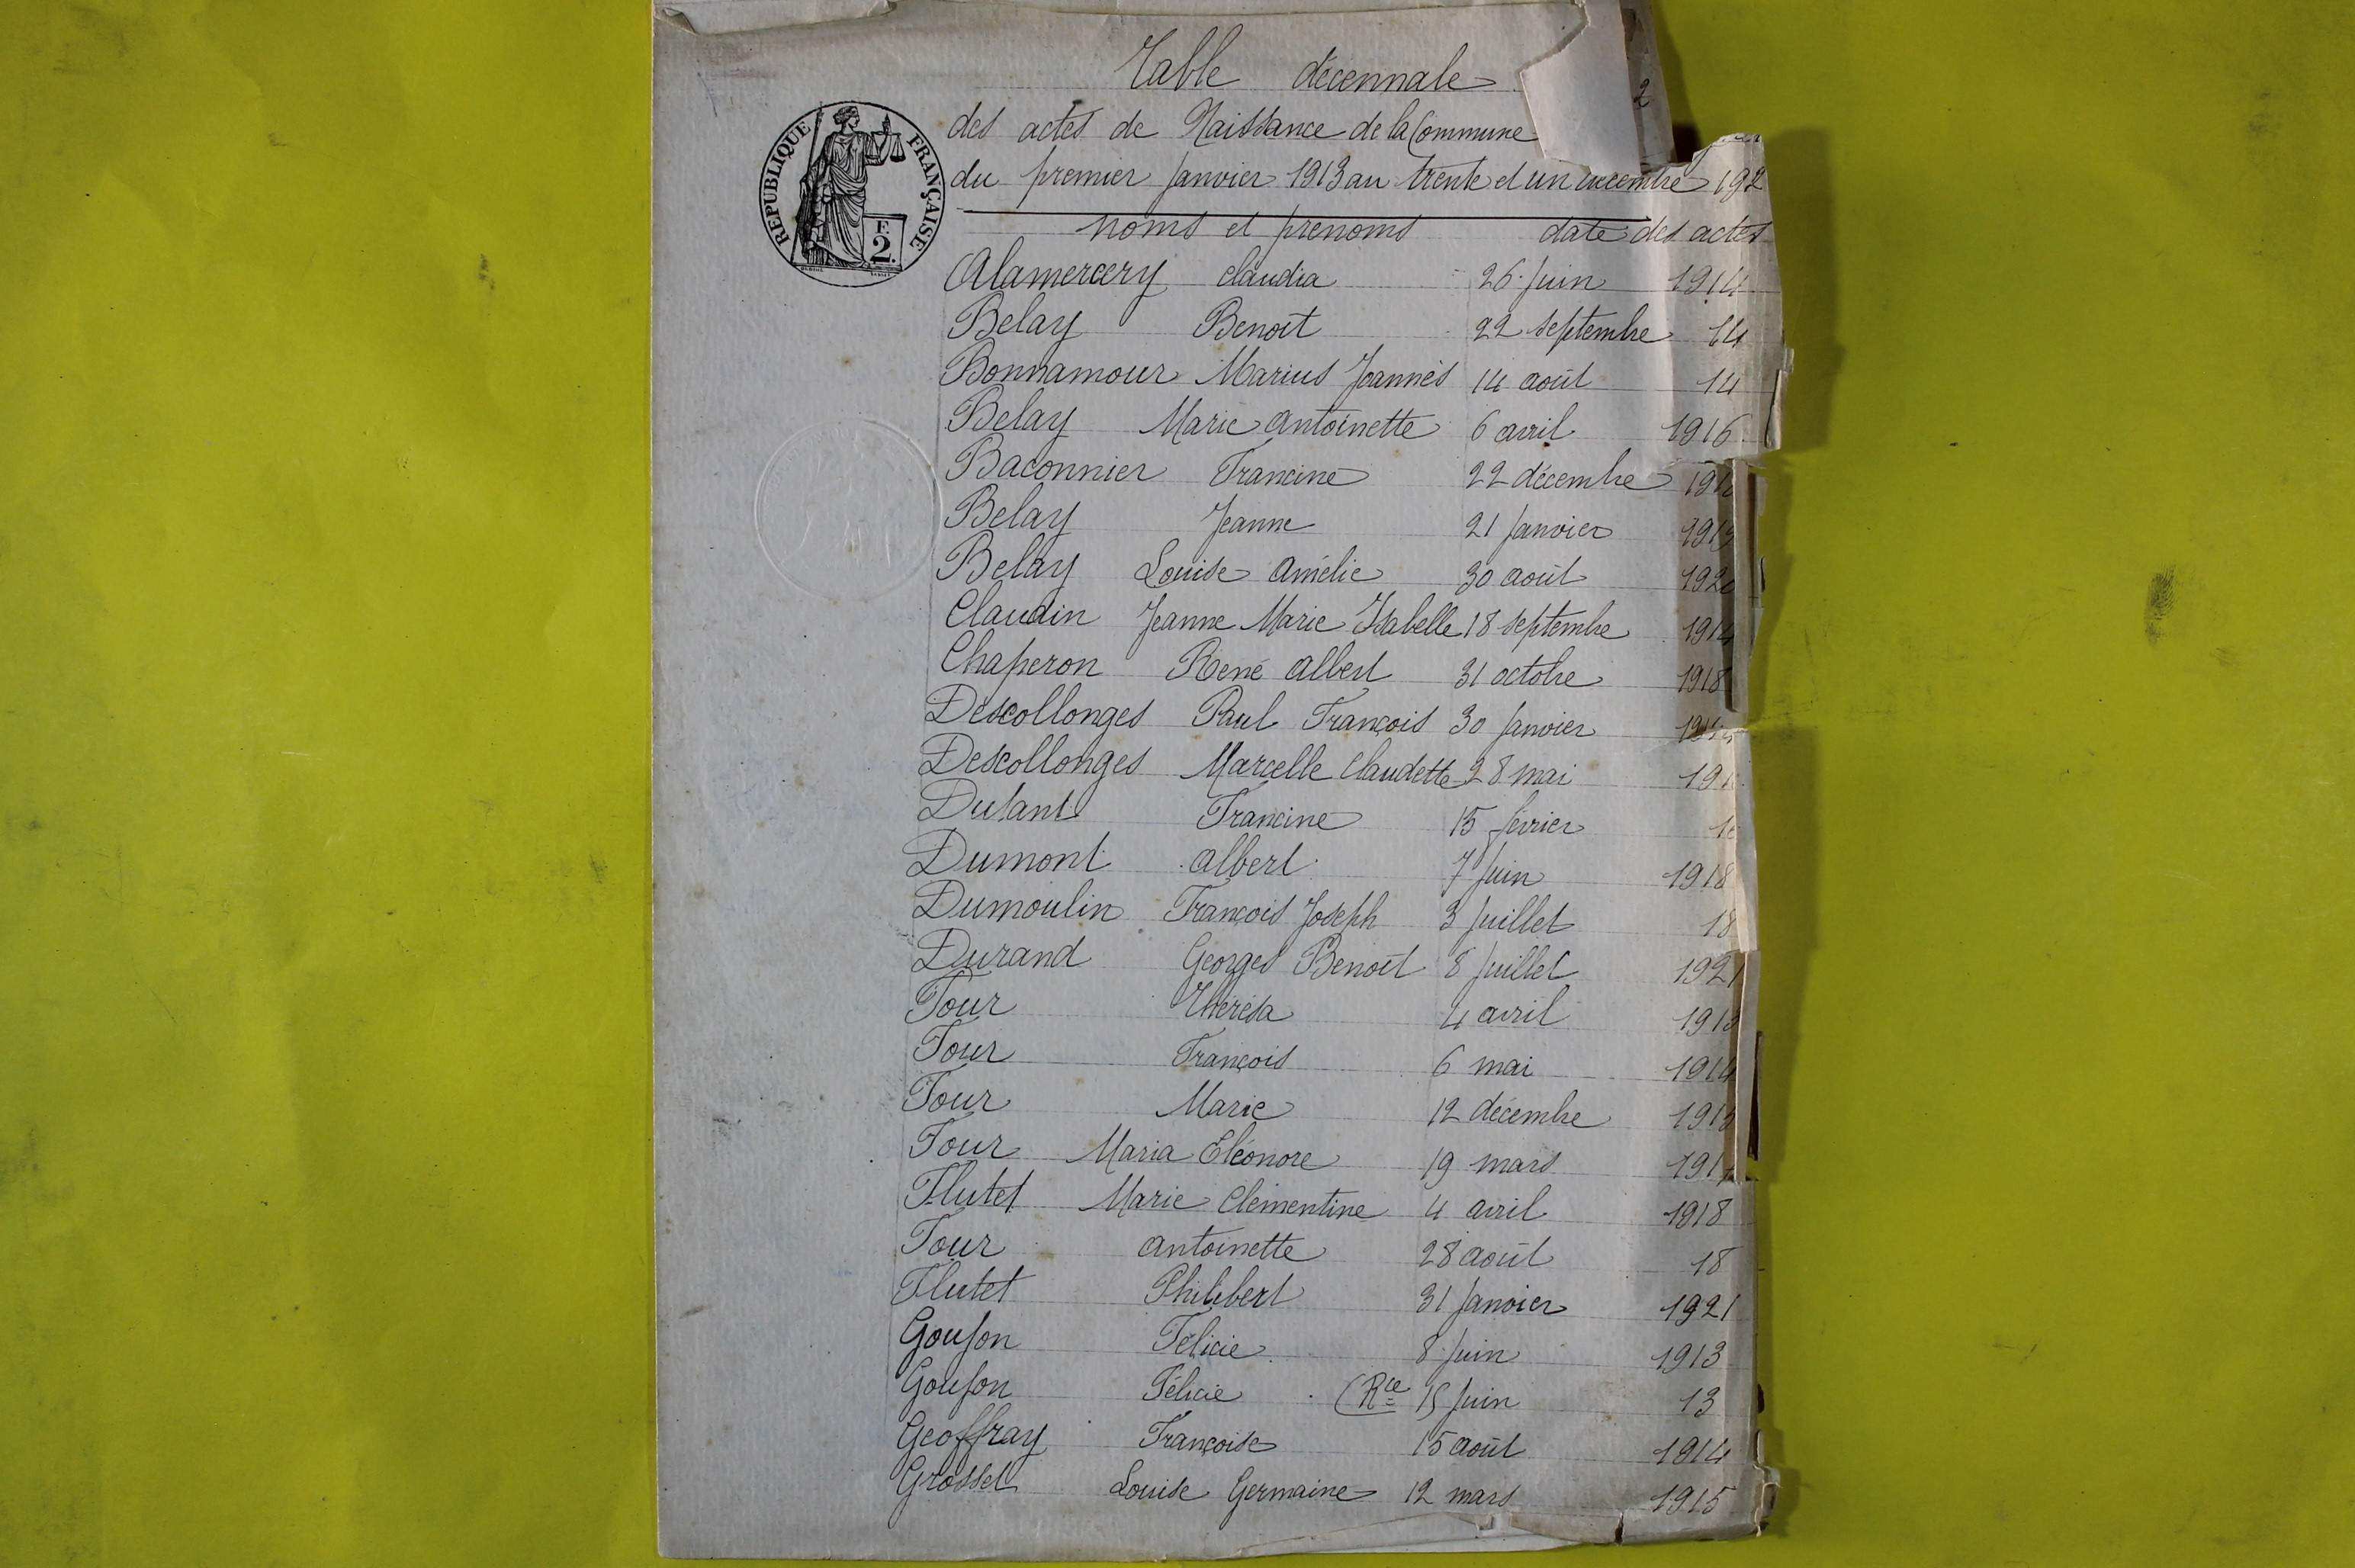 2
Table décennale
des actes de Naissance de la Commune
du premier janvier 1913 au trente et un décembre 192
RÉPUBLIQUE FRANÇAISE
F.
2.
noms et prenoms date des actes
Alamercery Claudia 26 juin 1914
Belay Benoît 22 septembre 14
Bonnamour Marius Joannès 14 août 14
Belay Marie Antoinette 6 avril 1916
Baconnier Francine 22 décembre
Belay Jeanne 21 janvier
Belay Louise Amélie 30 août 1920
Claudin Jeanne Marie Isabelle 18 septembre 1914
Chaperon René Albert 31 octobre 1918
Descollonges Paul François 30 janvier
Descollonges Marcelle Claudette 28 mai
Dufant Francine 15 février
Dumont Albert 7 juin 1918
Dumoulin François Joseph 3 juillet 18
Durand Georges Benoît 8 juillet 1921
Four Thérésa 4 avril 1913
Four François 6 mai 1914
Four Marie 12 décembre
Four Maria Eléonore 19 mars
Flutet Marie Clémentine 4 avril 1918
Four Antoinette 28 août 18
Flutet Philibert 31 janvier 1921
Goujon Félicie 8 juin 1913
Goujon Félicie (Rce 15 juin 13
Geoffray Françoise 15 août 1914
Grosset Louise Germaine 12 mars 1915